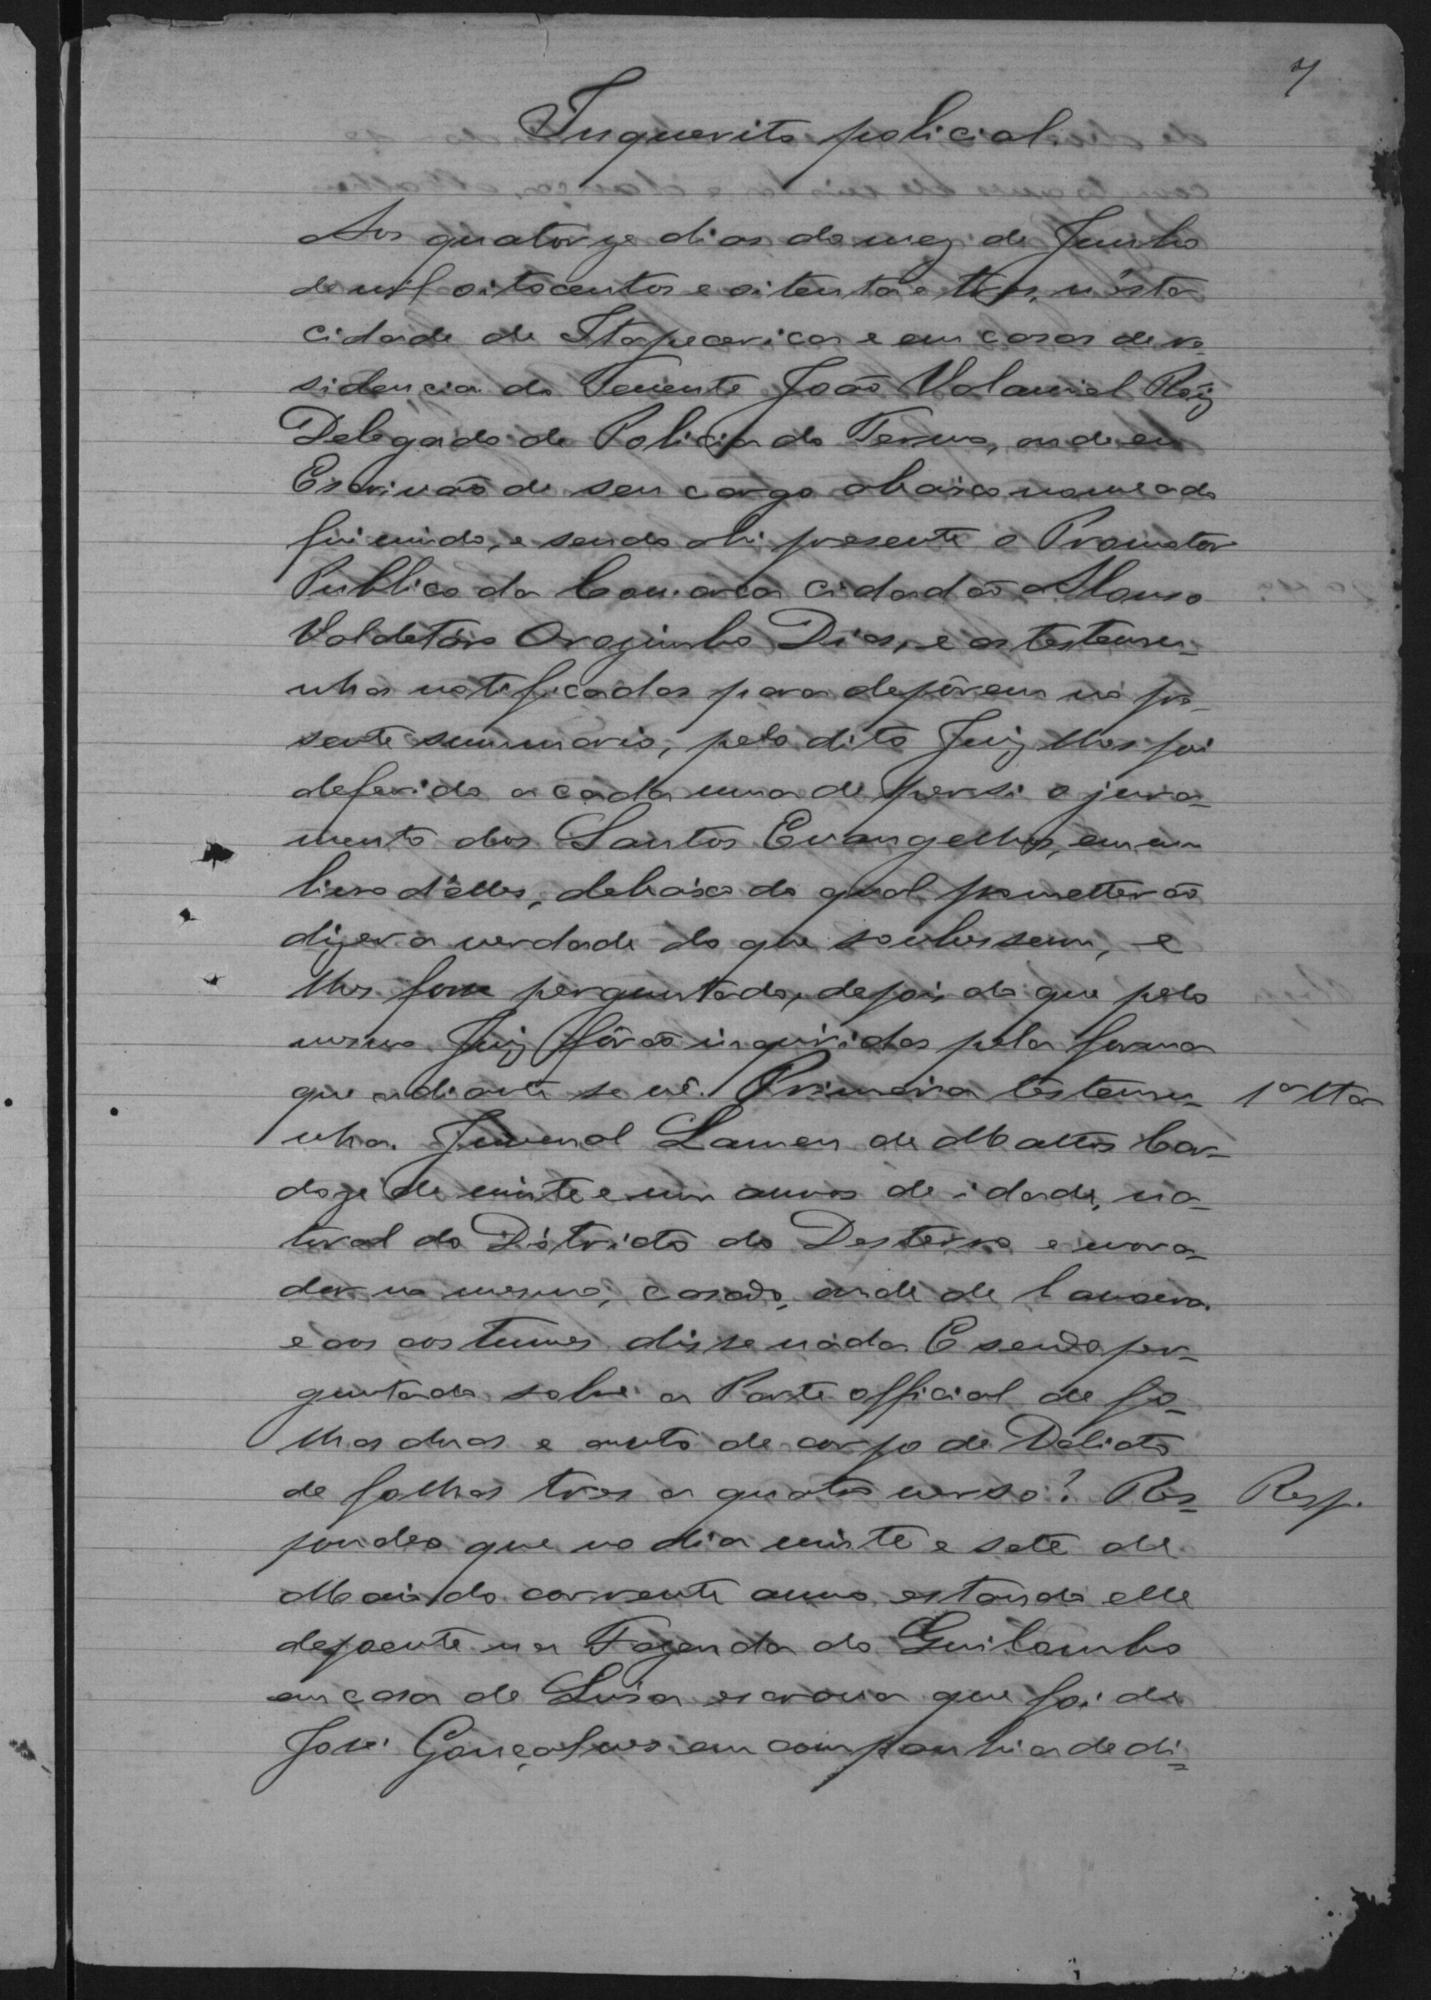 7
Inquerito policial
Aos quatorze dias do mez de Junho
de mil oitocentos e oitenta e tres, n'esta
cidade de Itapecerica e em casas de re-
sidencia do Tenente João Velamiel Roiz
Delegado de Policia do Termo, onde eu
Escrivão de seu cargo abaixo nomeado
fui vindo, e sendo ahi presente o Promotor
Publico da Comarca cidadão Affonso
Valdetaro Orozimbo Dias, e as testemu-
nhas notificadas para depôrem no pre-
sente summario, pelo dito Juiz lhes foi
deferido a cada uma de per si o jura-
mento dos Santos Evangelhos, em um
livro d'elles, debaixo do qual prometterão
dizer a verdade do que soubessem, e
lhes fosse perguntado, depois do que pelo
mesmo Juiz fôrão inquiridas pela forma
que adiante se vê. Primeira testemu- 1ª tta
nha. Juvenal Lamen de Mattos Car-
doze de vinte e um annos de idade, na-
tural do Districto do Desterro e mora-
dor no mesmo, casado, onde de lavoura
e aos costumes disse nada E sendo per-
guntado sobre a Parte official de fo-
lhas duas e auto de corpo de Delicto
de folhas tres a quatro verso? Res- Resp.
pondeo que no dia vinte e sete de
Maio do corrente anno, estando elle
depoente na Fazenda do Guilombo
em casa de Luisa escrava que foi de
José Gonçalves em companhia de di-